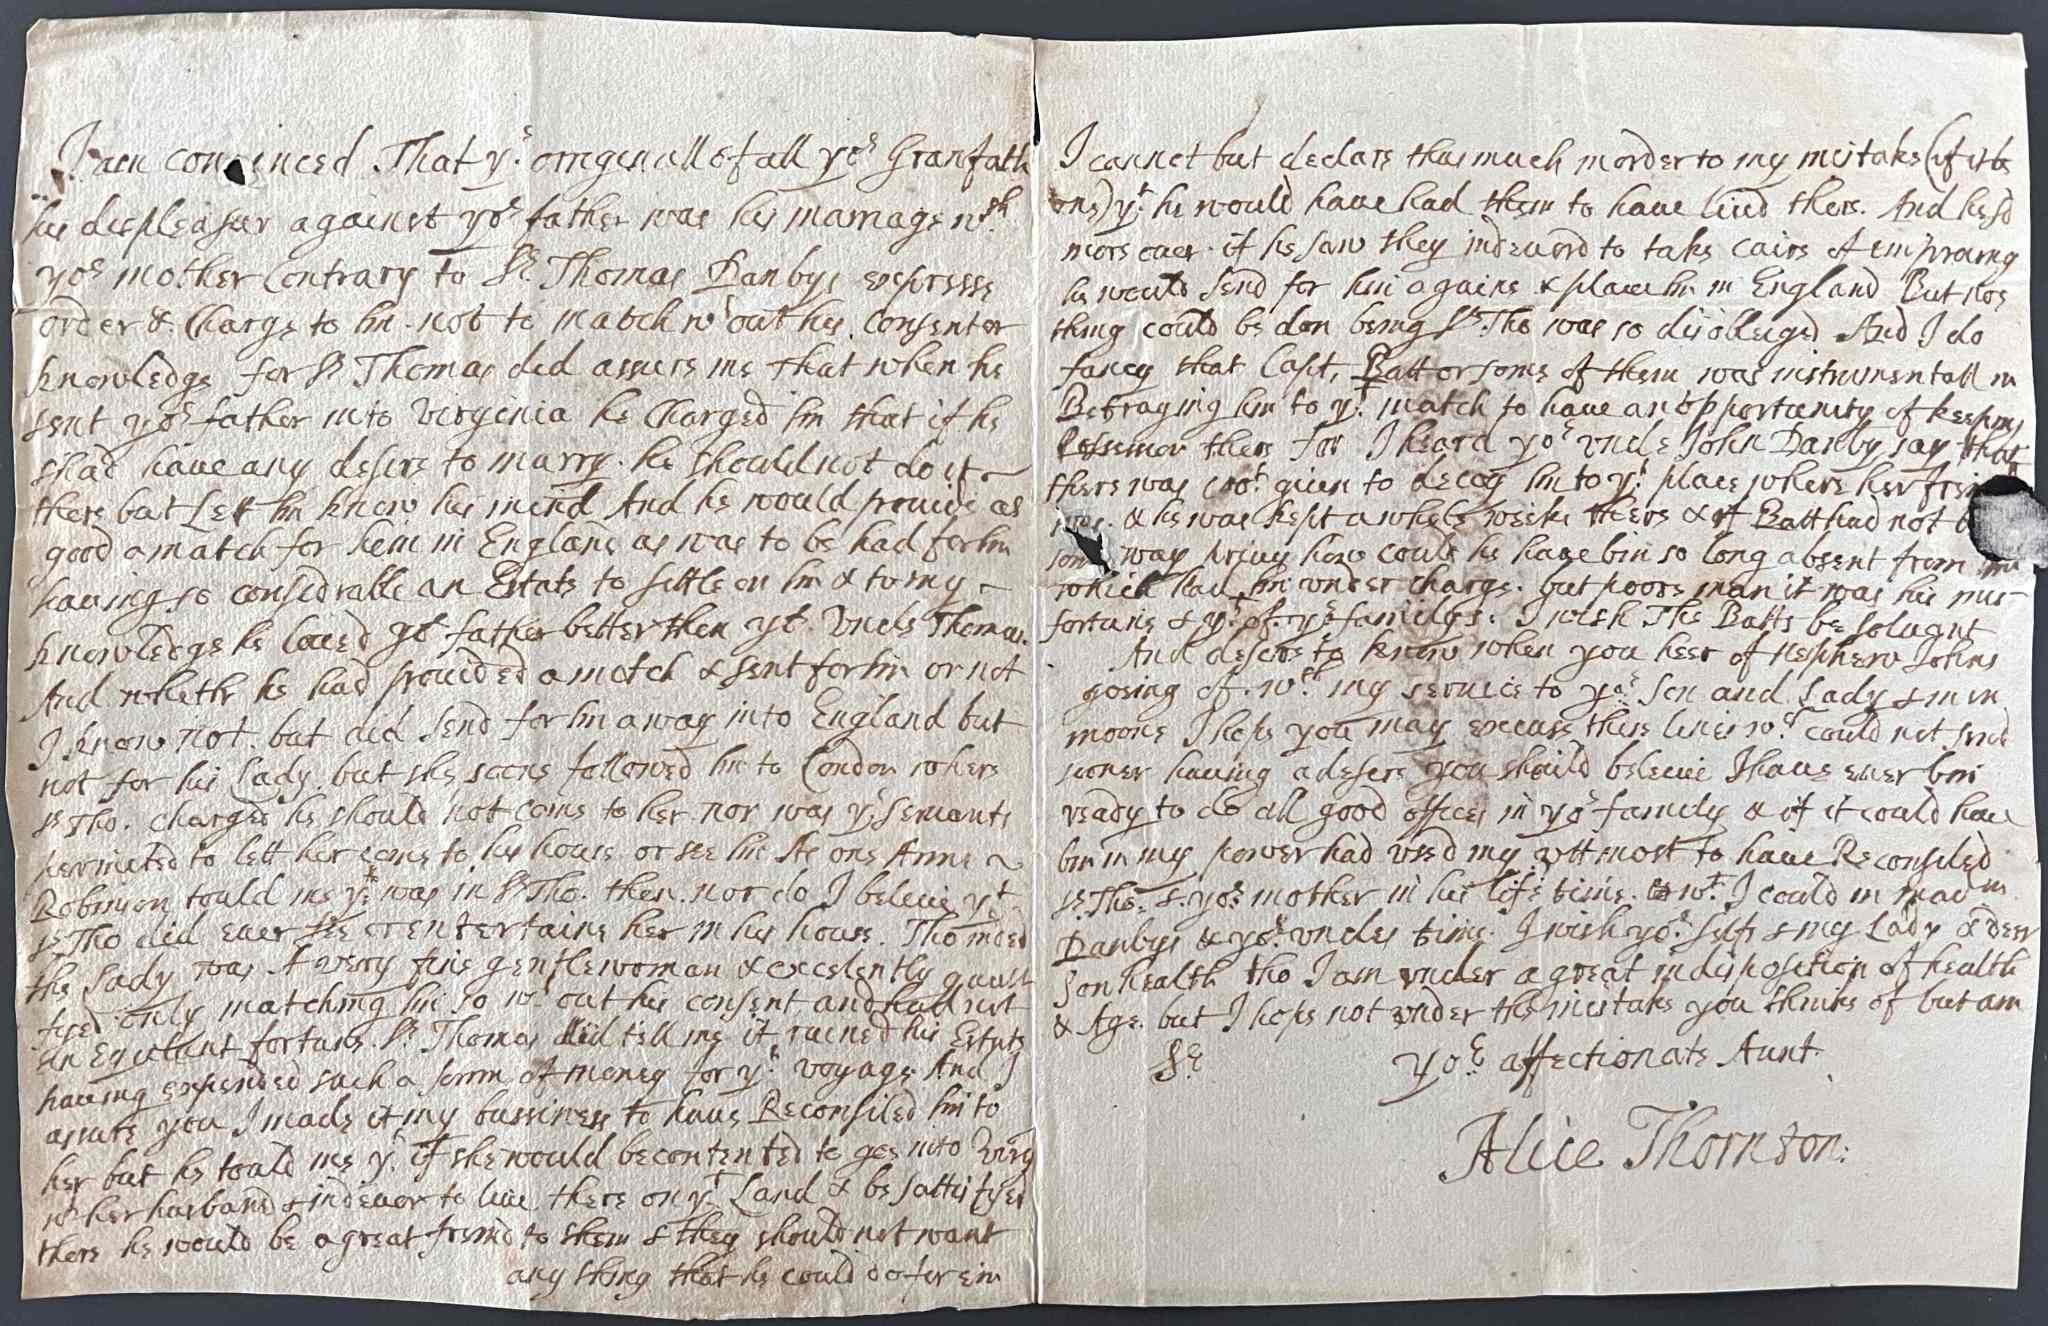 I am convinced That yͤ orrigenall of all yoͬ Granfath
his displeasur against yoͬ father was his marriage wͭʰ
yoͬ mother Contrary to Sͬ Thomas Danbys expresse
order & Charge to him not to match wͭout his Consent or
knowledge for Sͬ Thomas did assure me that when he
sent yoͬ father into Virginia he Charged him that if he
shad have any desire to marry he should not do it
there but Lett him know his mind And he would provide as
good a match for him in England as was to be had for him
having so considrable an Estate to settle on him & to my
knowledge he loved yoͬ father better then yoͬ Vncle Thomas
And whethr he had provided a match & sent for him or not
I know not. but did send for him away into England but
not for his Lady. but she soone followed him to London where
Sͬ Tho. charged he should not come to her nor was yͤ Servants
permited to lett her come to his house or see him As one Anne
Robinson tould me yͭ was in Sͬ Tho. then. nor do I beleive yͭ
Sͬ Tho did ever see or entertaine her in his house. Tho indeed
the Lady was A very fine gentlewoman & excelently
only matching him so wͭout his consent and had not
an fortune. Sͬ Thomas did tell me it ruined his Estate
having expended such a summ of money for yͤ voyage And I
assure you I made it my bussiness to have Reconsiled him to
her but he tould me yͭ if she would be contented to goe into Virg
wͭ her husband & indevor to live there on yͭ Land & be sattisfyed
there he would be a great freind to them & they should not want
any thing that he could do for em
I cannot but declare thus much in order to my mistake (if it be
one) yͭ he would have had them to have lived there. And he sd
more over if he saw they indevord to take caire of improving
he would send for him againe & place him in England But noe
thing could be don being Sͬ Tho was so disobleiged And I do
fancy that Capt. Batt or some of them was instrumentall in
Betraying him to yͭ match to have an opportunity of keeping
there for I heard yoͬ vncle John Danby say that
there was given to decoy him to yͭ place where her
& he was kept a whole weeke there & if Batt had not
some way privy how could he have bin so long absent from
which had him under charge. but poore man it was his mis
fortune & yͭ of yͤ familys. I wish The Batts be solvant
And desire to know when you heer of nephew Johns
going of. wͭʰ my service to yoͬ Son and Lady & min
moone I hope you may excuse these lines wͨ could not send
sooner having a desire you should beleive I have ever bin
ready to do all good offices in yoͬ family & if it could have
bin in my power had vsed my vttmost to have Reconsiled
Sͬ Tho. & yoͬ mother in his life time. wͭ I could in mad m
Danbys & yoͬ vncles time. I wish yoͬ selfe & my Lady & deer
son health tho I am vnder a great indisposition of health
& Age. but I hope not vnder the mistake you thinke of but am
Sͬ yoͬ affectionate Aunt
Alice Thornton: